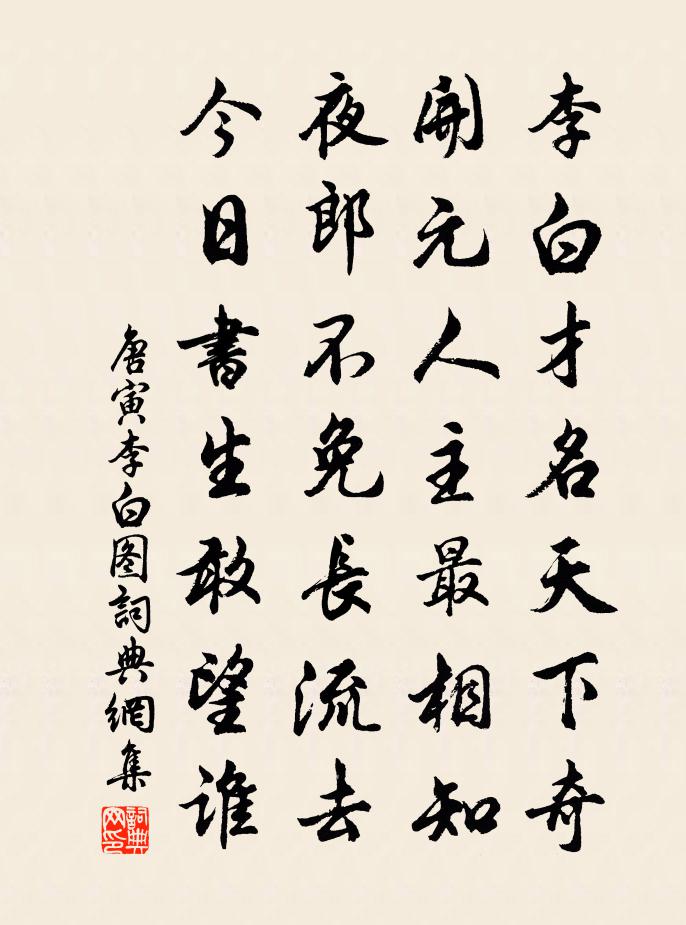 李白才名天下奇
開元人主最相知
夜郎不免長流去
今日書生敢望誰
唐寅李白图詞典網集
詞典
网印